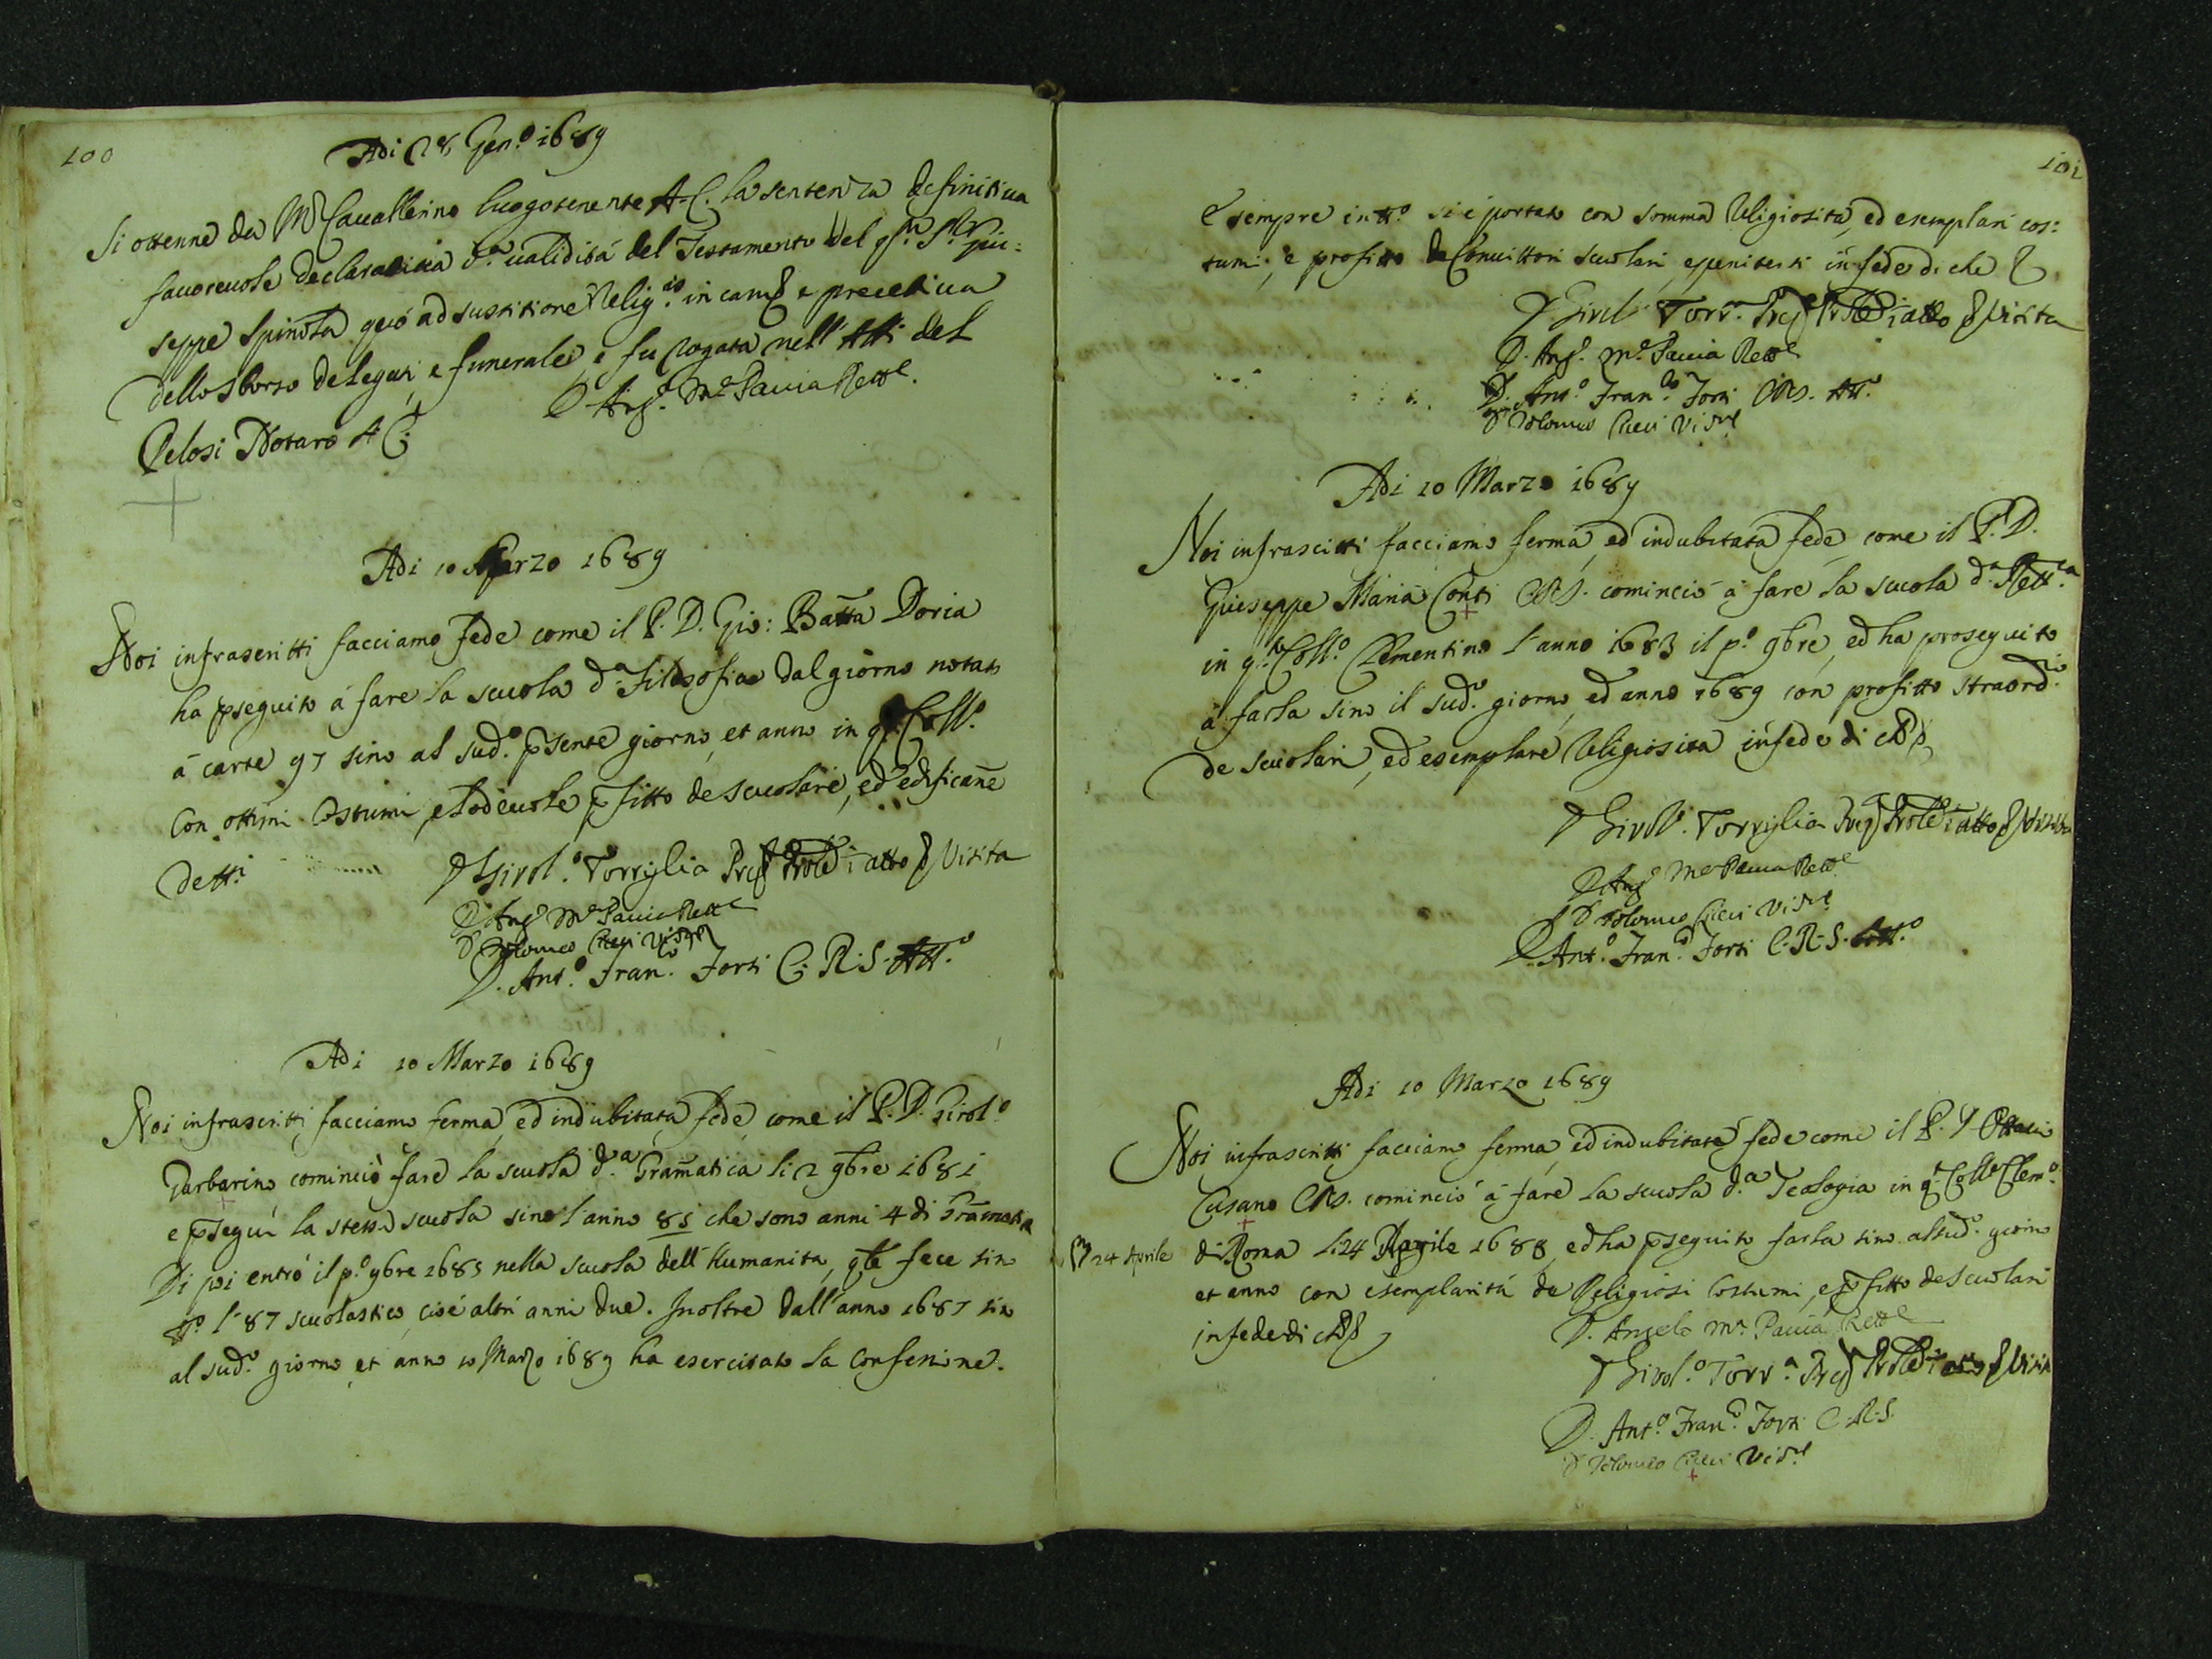 100
Adi 28 Gen.º 1689
Si ottenne da M.r Cavallerino luogotenente A.C. la sentenza definitiva
favorevole declarativa d.ª validità del Testamento del q.m S.r Giu=
seppe Spinola quò ad sustitione Relig.is in
dello sborso de legati, e funerale, e fu rogata nell' Atti del
Pelosi Notaro A C.
D. Ang.º M.ª Pavia Rett.e
Adi 10 Marzo 1689
Noi infrascritti facciamo fede come il P. D. Gio: Batta Doria
ha pseguito à fare la scuola d.ª Filosofia dal giorno notato
à carte 97 sino al sud.º psente giorno, et anno in q.º Coll.º
con ottimi costumi, e lodevole pfitto de scuolari, ed edificane
detti
D Girol.º Torriglia Prep Prole i atto p Visita
D. Ang.º M.ª Pavia Rett.e
D Tolomeo Cicci Vis.re
D. Ant.º Fran.co Forti C. R. S. Att.º
Adi 10 Marzo 1689
Noi infrascritti facciamo ferma, ed indubitata fede come il P. D. Girol.º
Garbarino cominciò fare la scuola d.ª Gramatica li 2 9bre 1681
e pseguì la stessa scuola sino l'anno 85 che sono anni 4 di Gramatica
Di poi entrò il p.º 9bre 1685 nella scuola dell' Humanita, qle fece sin
tt.º l' 87 scuolastico, cioè altri anni due. Inoltre dall' anno 1687 sin
al sud.º giorno et anno 10 Marzo 1689 ha esercitato la Confessione.
101
E sempre in tt.º si è portato con somma Religiosità, ed esemplari cos:
tumi, e profitto de Convittori scuolari, e penitenti in fede di che
D Girol.º Torr.ª Prep Prole i atto p Visita
D. Ang.º M.ª Pavia Rett.e
D. Ant.º Fran.co Forti CRS. Att.º
D Tolomeo Cicci Vis.re
Adi 10 Marzo 1689
Noi infrascitti facciamo ferma, ed indubitata fede come il P. D.
Giuseppe Maria Conti CRS. cominciò à fare la scuola d.ª Rett.ca
in q.º Coll.º Clementino l'anno 1683 il p.º 9bre, ed ha proseguito
à farla sino il sud.º giorno, ed anno 1689 con profitto straord.io
de scuolari, ed esemplare Religiosita in fede di che
D Girol.º Torriglia Prep Prole i atto p Visita
D Ang.º M.ª Pavia Rett.e
D Tolomeo Cicci Vis.re
D. Ant.º Fran.co Forti C. R. S. Att.º
Adi 10 Marzo 1689
Noi infrascritti facciamo ferma, ed indubitata fede come il P. D Ottavio
Cusano CRS. cominciò à fare la scuola d.ª Teologia in q.º Coll.º Clem.º
24 Aprile
di Roma li 24 Aprile 1688, ed ha pseguito farla sino al sud.º giorno
et anno con esemplarità de Religiosi costumi, e pfitto de scuolari
in fede di che
D. Angelo M.ª Pavia Rett.e
D Girol.º Torr.ª Prep Prole i atto p Visita
D. Ant.º Fran.co Forti C. R. S.
D Tolomeo Cicci Vis.re